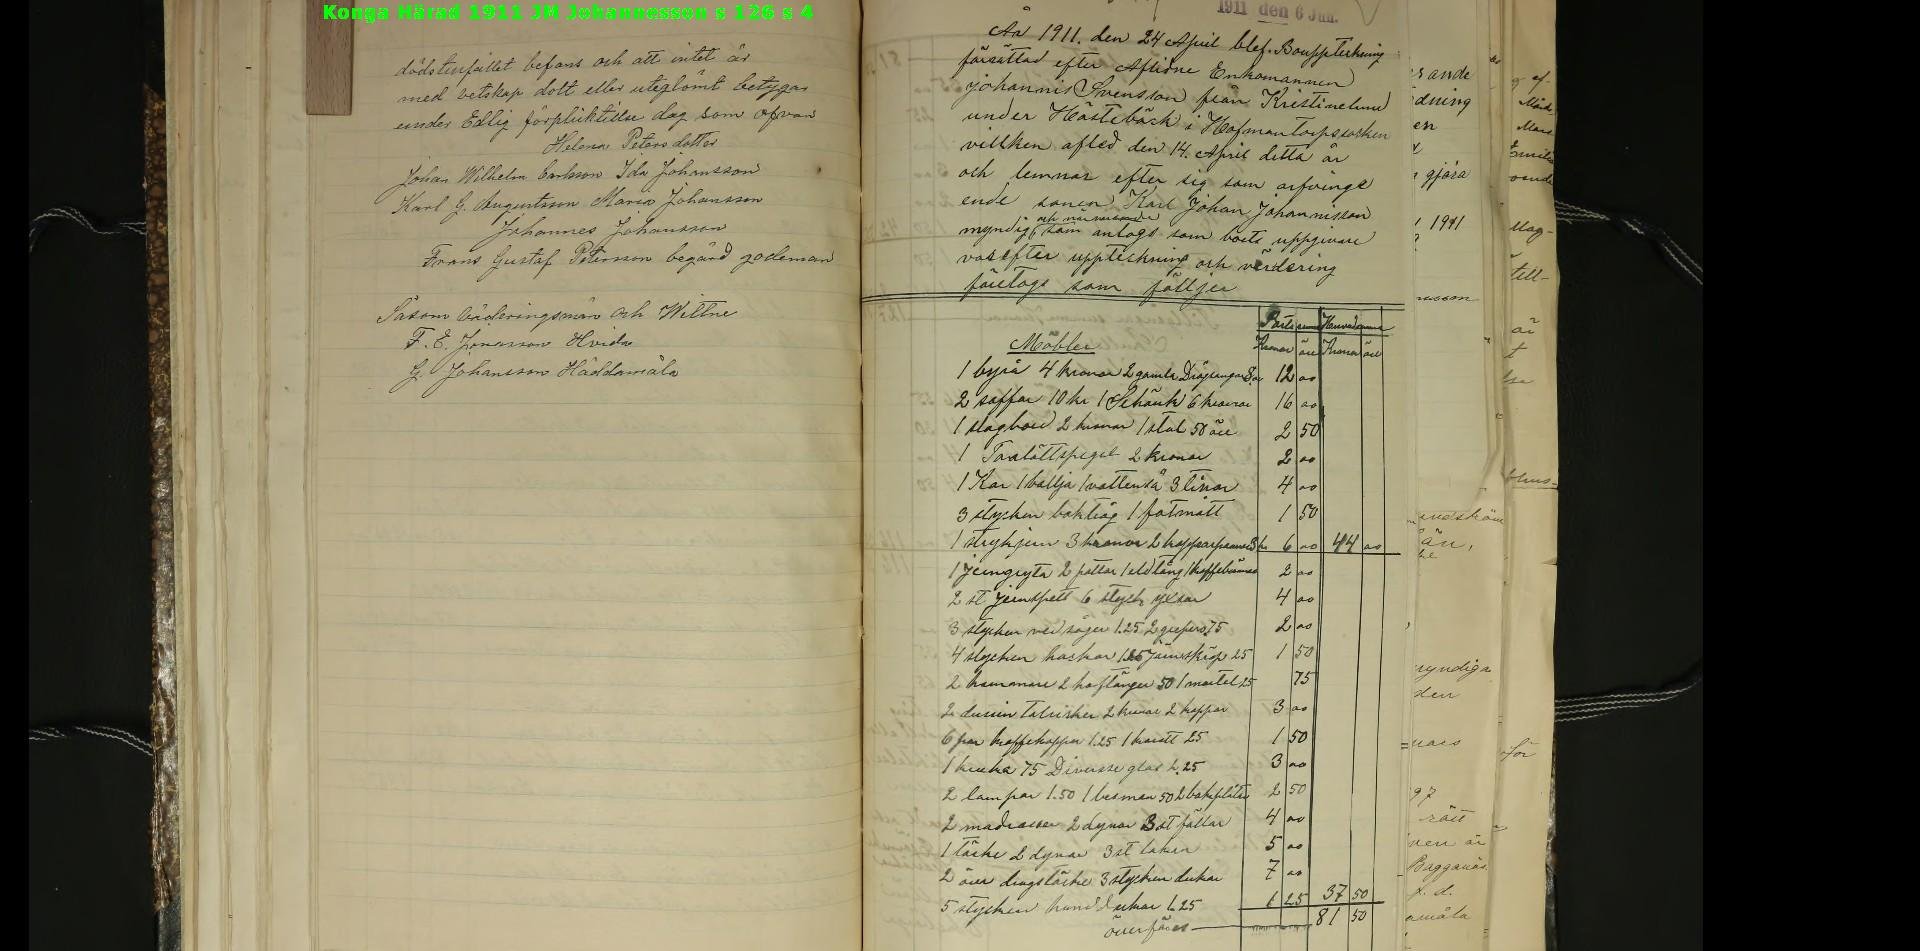 Konga Härad 1911 JH Johannesson s 126 s 4
dödstillfället befans och att intet är
med vetskap dolt eller uteglömt betygas
under Edlig förpliktelse dag som ofvan
Helena Petersdotter
Johan Wilhelm Carlsson Ida Johansson
Karl G. Augustsson Maria Johansson
Johannes Johansson
Frans Gustaf Petersson begärd godeman
Såsom värderingsmän och Wittne
F. E. Jonasson Hvida
G. Johansson Häddamåla
1911 den 6 Jun.
År 1911. den 24 April blef. Bouppteckning
författad efter Aflidne Enkomannen
Johannis Svensson från Kristinelund
under Hästebäck i Hofmantorpssocken
villken afled den 14. April detta år
och lemnar efter sig som arfvinge
ende sonen Karl Johan Johannisson
och närvarande
myndig som antogs som boets uppgivare
varefter uppteckning och värdering
företogs som följer
Kronor öre Kronor öre
Möbler
1 byrå 4 kronor 2 gamla Dragsängar 8 kr 12 00
2 soffor 10 kr 1 Skänk 6 kronor 16 00
1 slagbord 2 kronor 1 stol 50 öre 2 50
1 Toalettspegel 2 kronor 2 00
1 Kar 1 ballja 1 vattenså 3 tinor 4 00
3 stycken baktråg 1 1 50
1 strykjern 3 kronor 2 kopparpannor 3 kr 6 00 44 00
1 jerngryta 2 pottor 1 eldtång 1 kaffebrännare 2 00
2 st jernspett 6 styck yxor 4 00
3 stycken vedsågar 1.25 2 grepar 75 2 00
4 stycken hackor 1.25 jernskop 25 1 50
2 hammare 2 hoftänger 50 1 mortel 25 75
2 dussin talrikar 2 kronor 2 koppar 3 00
6 par kaffekoppar 1.25 1 karott 25 1 50
1 kruka 75 Diverse glas 2.25 3 00
2 lampor 1.50 1 besman 50 2 bakplåtar 2 50
2 madrasser 2 dynor 3 st fällar 4 00
1 täcke 2 dynor 3 st lakan 5 00
2 överdragstäcke 3 stycken dukar 7 00
5 stycken handdukar 1.25 1 25 37 50
överföres 81 50